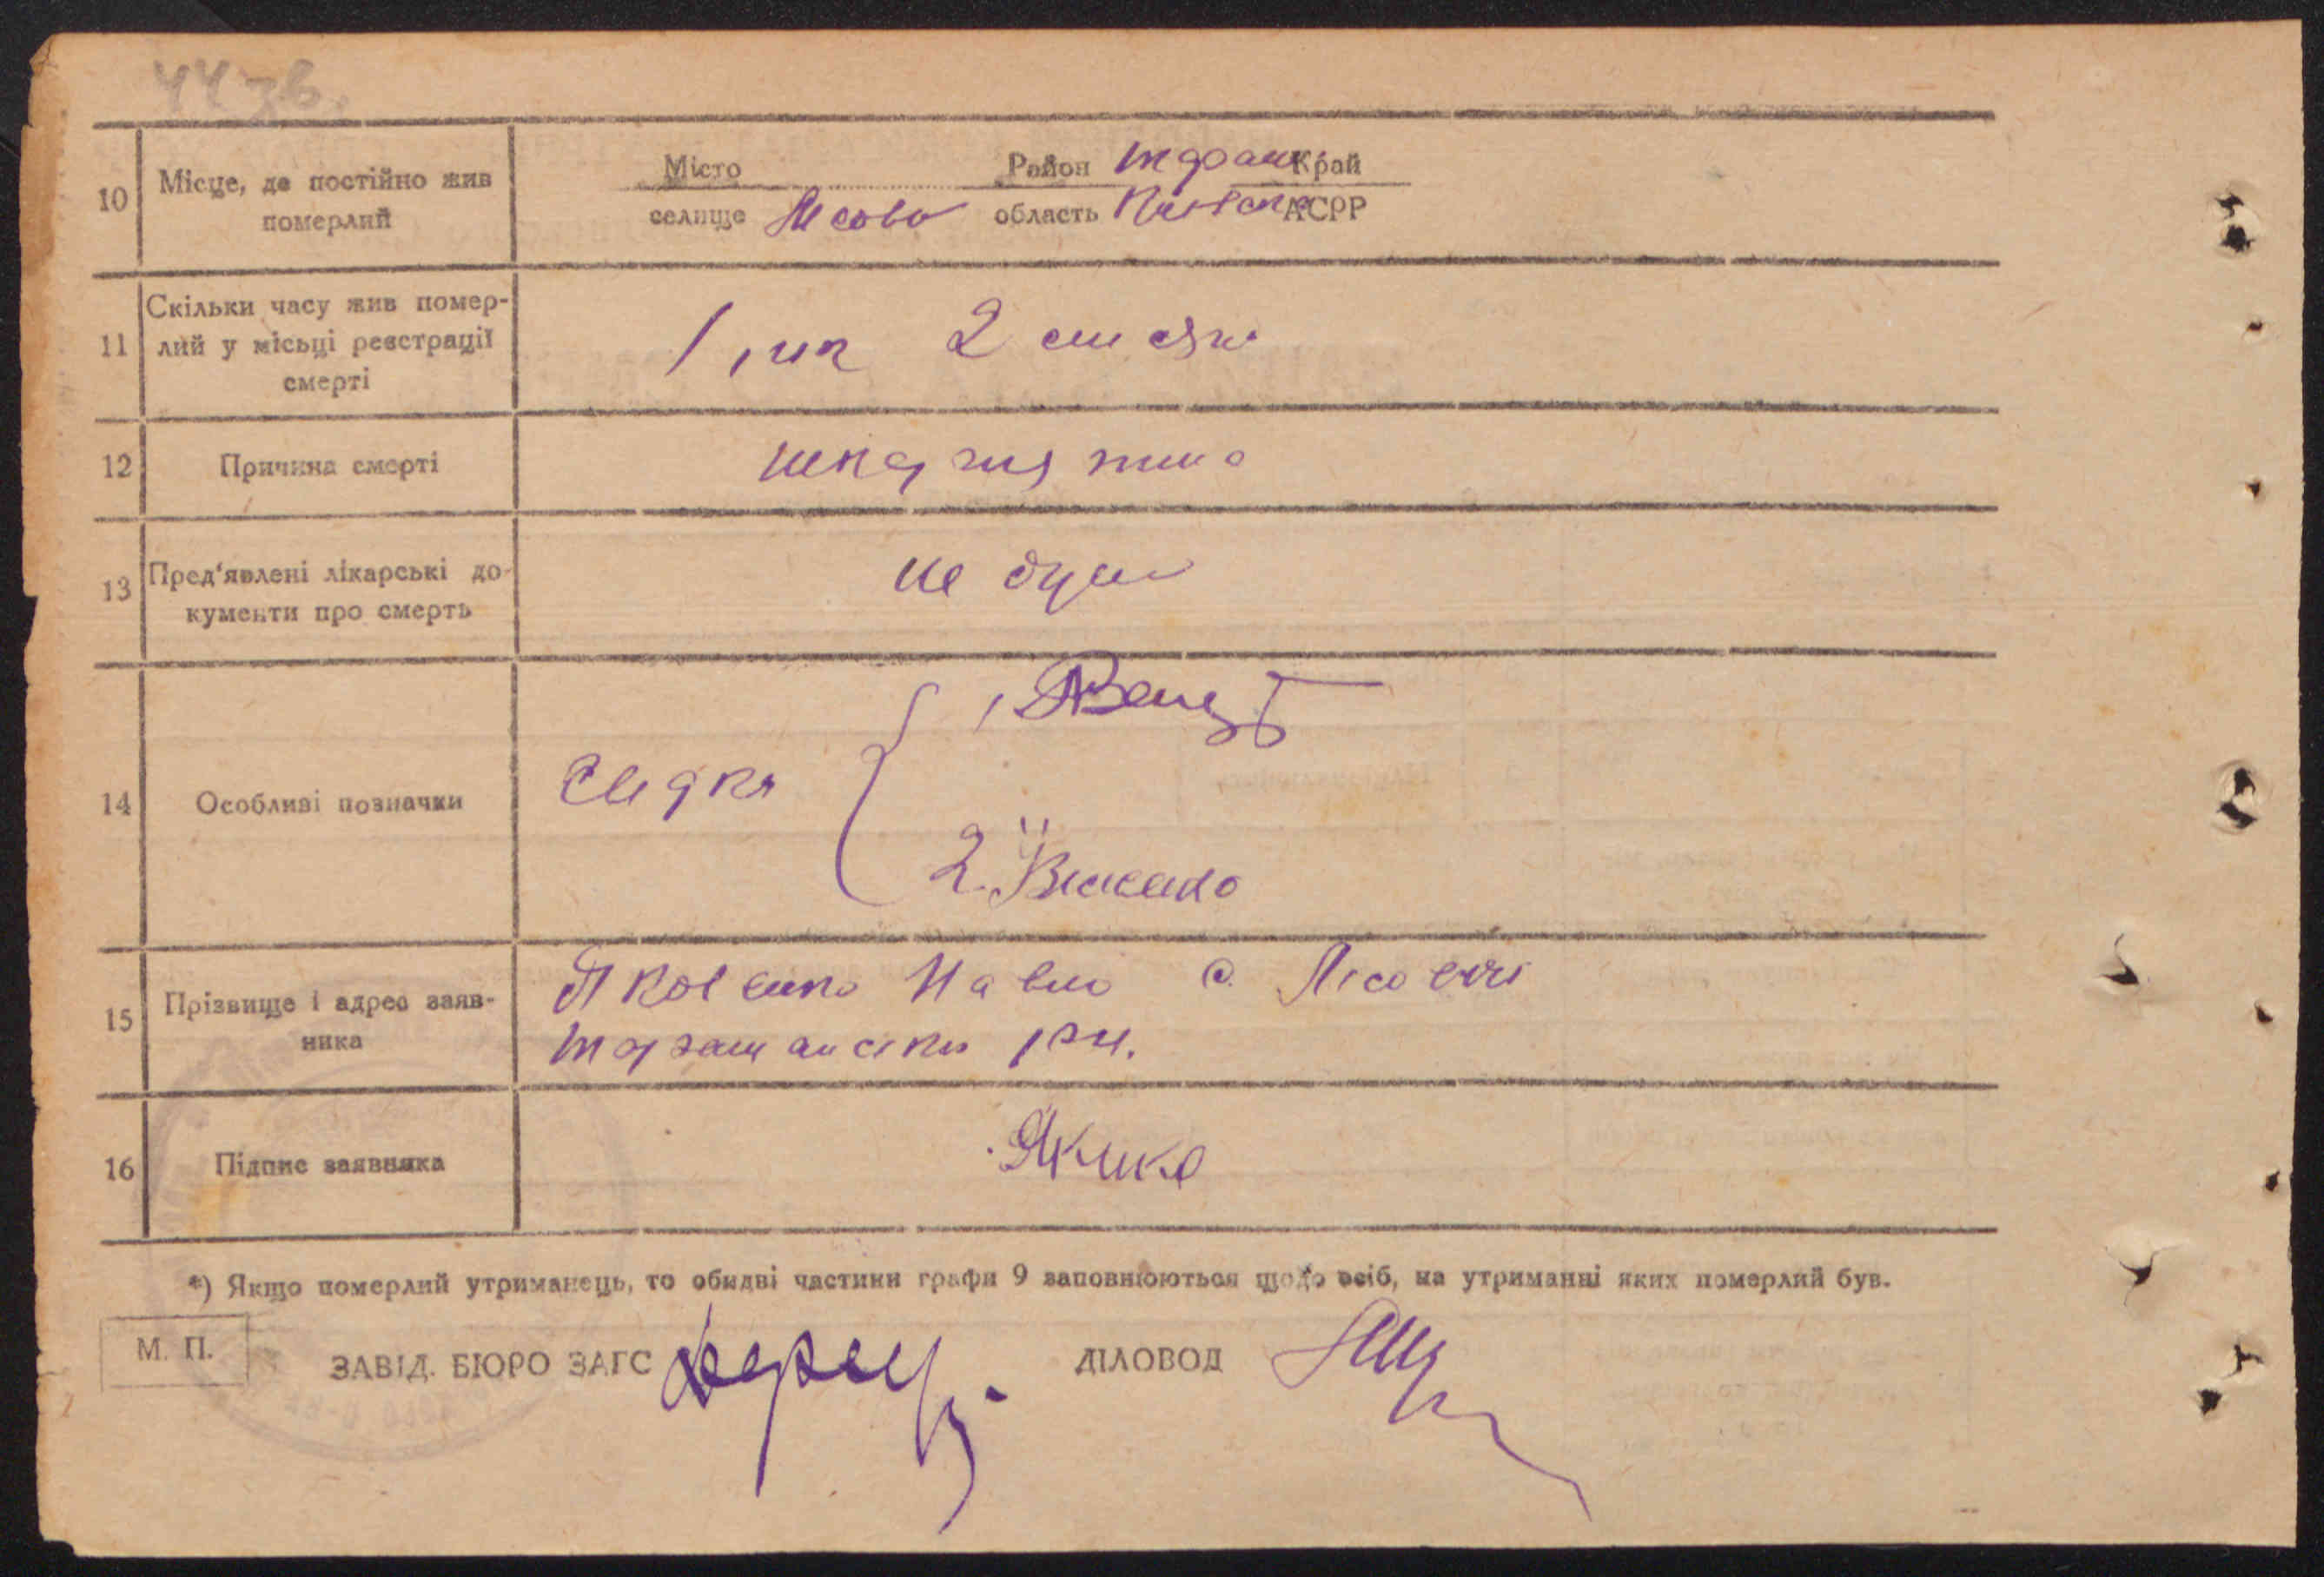 44 зв.
10 Місце, де постійно жив померлий
Місто Район Край
селище область АСРР
11 Скільки часу жив помер-
лий у місьці реєстрації
смерті
1 рік 2 місяці
12 Причина смерті
шкарлятина
13 Пред'явлені лікарські до-
кументи про смерть
не були
14 Особливі позначки
Свідки
1.
2.
15 Прізвище і адрес заяв-
ника
Яковенко Павло с. Лісовичі
Таращанськ рн.
16 Підпис заявника
*) Якщо померлий утриманець, то обидві частини графи 9 заповнюються щодо осіб, на утриманні яких померлий був.
М. П.
ЗАВІД. БЮРО ЗАГС ДІЛОВОД